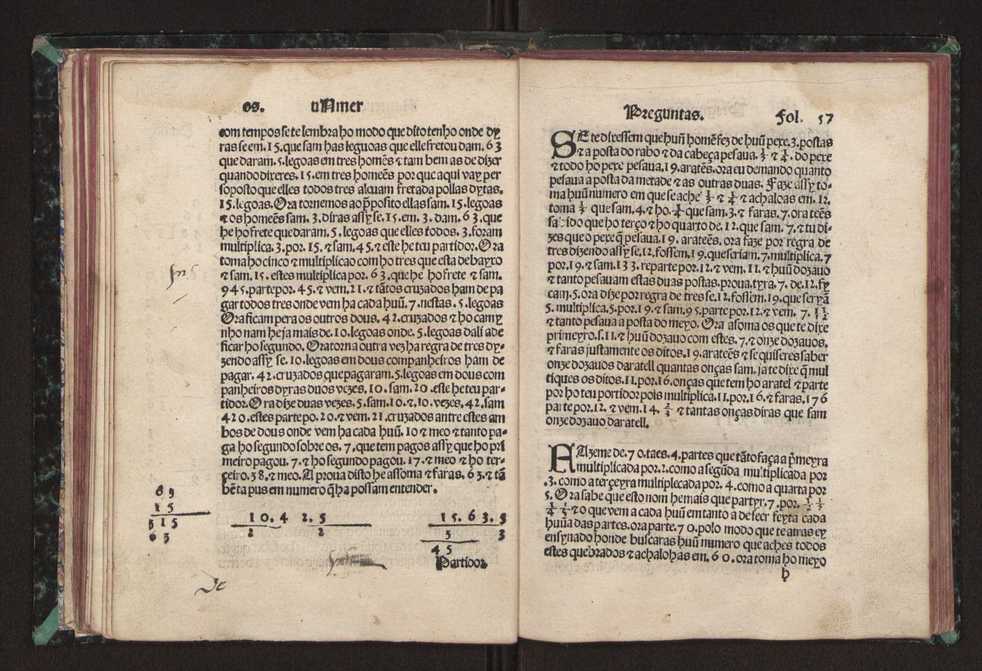 os. uNmer
com tempos se te lembra ho modo que dito tenho onde dy
ras se em .15. que sam has leguoas que elle fretou dam .63
que daram .5. legoas em tres homẽs ⁊ tam bem as de dizer
quando dixeres .15. em tres homẽes por que aqui vay per
soposto que elles todos tres aluam fretada pollas dytas.
15. legoas. Ora tornemos ao p̃posito ellas sam .15. legoas
⁊ os homeẽs sam .3. diras assy se .15. em .3. dam .63. que
he ho frete que daram .5. legoas que elles todos .3. foram
multiplica .3. por .15. ⁊ sam .45. ⁊ este he teu partidor. Ora
toma ho cinco ⁊ multiplica o com ho tres que esta debayxo
⁊ sam .15. estes multiplica por .63. que he ho frete ⁊ sam.
945. parte por .45. ⁊ vem .21 ⁊ tãtos cruzados ham de pa
gar todos tres onde vem ha cada huũ .7. nestas .5. legoas
Ora ficam pera os outros dous .42. cruzados ⁊ ho camy
nho nam he ja mais de .10. legoas onde .5. legoas dali a de
ficar ho segundo. Ora torna outra vez ha regra de tres dy-
zendo assy se .10. legoas em dous companheiros ham de
pagar .42. cruzados que pagaram .5. legoas em dous com
panheiros dyras duos vezes .10. sam .20. este he teu par-
tidor. Ora dize duas vezes .5. sam .10. ⁊ .10. vezes .42. sam
420. estes parte po .20. ⁊ vem .21. cruzados antre estes am
bos de dous onde vem ha cada huũ .10 ⁊ meo ⁊ tanto pa-
ga ho segundo sobre os .7. que tem pagos assy que ho pri
meiro pagou .7. ⁊ ho segundo pagou .17. ⁊ meo ⁊ ho ter-
çeiro .38. ⁊ meo. A proua disto he assoma ⁊ faras .63. ⁊ tã
bẽ ta pus em numero q̃ ha possam entender.
10.4 2.5
2 2
15.63.5
5 3
45
Partidor
15
515
63
Preguntas. Fol. 57
SE te dixessem que huũ homẽ fez de huũ pexe .3. postas
⁊ a posta do rabo ⁊ da cabeça pesaua. ⅓ ⁊ ¼. do pexe
⁊ todo ho pexe pesaua .19. aratẽs. ora eu demando quanto
pesaua a posta da metade ⁊ as outras duas. Faze assy to-
ma huũ numero em que se ache ⅓ ⁊ ¼ ⁊ achalo as em .12.
toma ⅓ que sam .4. ⁊ ho. ¼ que sam .3. ⁊ faras .7. ora teẽs
sabido que ho terço ⁊ ho quarto de .12. que sam .7. ⁊ tu di-
zes que o pexe q̃ pesaua .19. arateẽs, ora faze por regra de
tres dizendo assy se .12. fossem .19. que seriam .7. multiplica .7
por .19. ⁊ sam 133. reparte por .12. ⁊ vem .11. ⁊ huũ dozauo
⁊ tanto pesauam estas duas postas. proua. tyra .7. de .12. fy
cam .5. ora dize por regra de tres se .12. fossem .19. que seryã
5. multiplica .5. por .19. ⁊ sam .95. parte por .12. ⁊ vem. 7. 11/12
⁊ tanto pesaua a posta do meyo. Ora asoma os que te dixe
primeyro. s. 11. ⁊ huũ dozauo com estes .7. ⁊ onze dozauos,
⁊ faras justamente os ditos .19. arateẽs ⁊ se quiseres saber
onze dozauos daratell quantas onças sam. ja te dixe q̃ mul
tiques os ditos .11. por .16. onças que tem ho aratel ⁊ parte
por ho teu portidor pois multiplica .11. por .16. ⁊ faras .176
parte por .12. ⁊ vem .14. ⅔ ⁊ tantas onças diras que sam
onze dozauo daratell.
FAlzeme de .70. taes .4. partes que tãto faça a p̃meyra
multiplicada por .2. como a segũda multiplicada por
.3. como a terçeyra multiplecada por .4. como a quarta por
5. Ora sabe que esto nom he mais que partyr .7. por. ½ ⅓
¼ ⅕ ⁊ o que vem a cada huũ em tanto a de seer feyta cada
huũa das partes. ora parte .70. polo modo que te atras ey
ensynado honde buscaras huũ numero que aches todos
estes quebrados ⁊ achalo has em .60. ora toma ho meyo
h